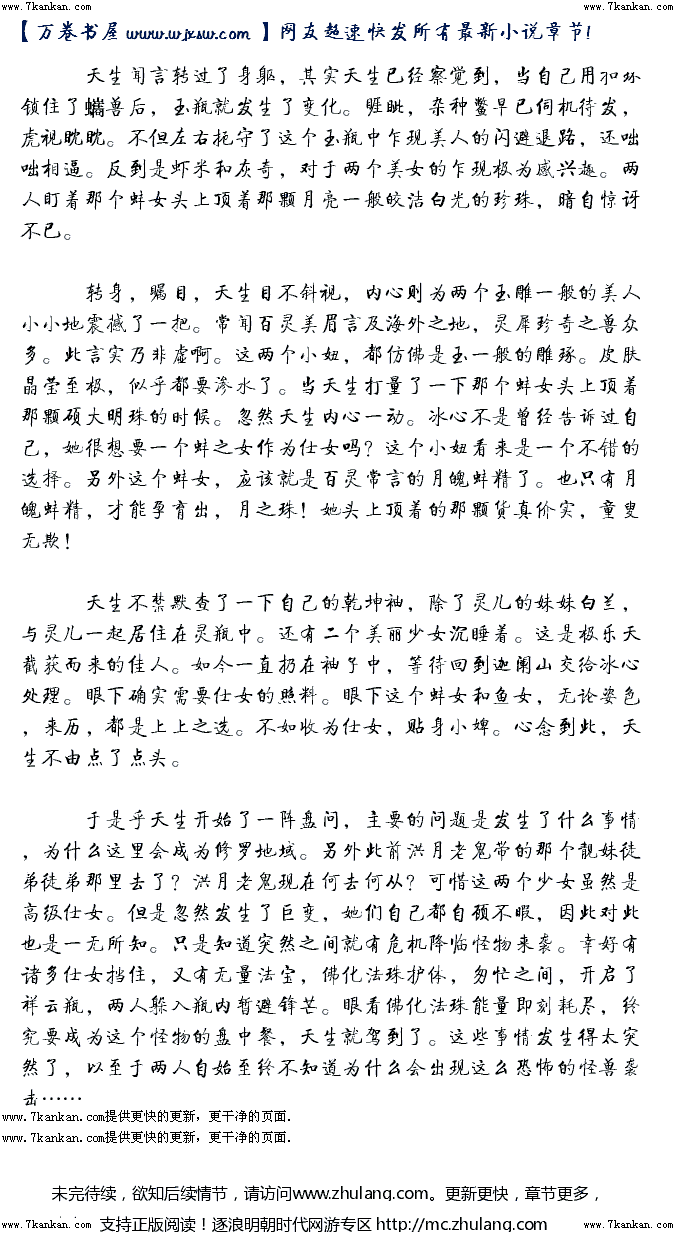 www.7kankan.com www.7kankan.com
【万卷书屋 www.wjxsw.com 】网友超速快发所有最新小说章节!
天生闻言转过了身躯，其实天生已经察觉到，当自己用扣环
锁住了蠵兽后，玉瓶就发生了变化。睚眦，杂种鳖早已伺机待发，
虎视眈眈。不但左右扼守了这个玉瓶中乍现美人的闪避退路，还咄
咄相逼。反到是虾米和灰奇，对于两个美女的乍现极为感兴趣。两
人盯着那个蚌女头上顶着那颗月亮一般皎洁白光的珍珠，暗自惊讶
不已。
转身，瞩目，天生目不斜视，内心则为两个玉雕一般的美人
小小地震撼了一把。常闻百灵美眉言及海外之地，灵犀珍奇之兽众
多。此言实乃非虚啊。这两个小妞，都仿佛是玉一般的雕琢。皮肤
晶莹至极，似乎都要渗水了。当天生打量了一下那个蚌女头上顶着
那颗硕大明珠的时候。忽然天生内心一动。冰心不是曾经告诉过自
己，她很想要一个蚌之女作为仕女吗？这个小妞看来是一个不错的
选择。另外这个蚌女，应该就是百灵常言的月魄蚌精了。也只有月
魄蚌精，才能孕育出，月之珠！她头上顶着的那颗货真价实，童叟
无欺！
天生不禁默查了一下自己的乾坤袖，除了灵儿的妹妹白兰，
与灵儿一起居住在灵瓶中。还有二个美丽少女沉睡着。这是极乐天
截获而来的佳人。如今一直扔在袖子中，等待回到迦阑山交给冰心
处理。眼下确实需要仕女的照料。眼下这个蚌女和鱼女，无论姿色
，来历，都是上上之选。不如收为仕女，贴身小婢。心念到此，天
生不由点了点头。
于是乎天生开始了一阵盘问，主要的问题是发生了什么事情
，为什么这里会成为修罗地域。另外此前洪月老鬼带的那个靓妹徒
弟徒弟那里去了？洪月老鬼现在何去何从？可惜这两个少女虽然是
高级仕女。但是忽然发生了巨变，她们自己都自顾不暇，因此对此
也是一无所知。只是知道突然之间就有危机降临怪物来袭。幸好有
诸多仕女挡住，又有无量法宝，佛化法珠护体，匆忙之间，开启了
祥云瓶，两人躲入瓶内暂避锋芒。眼看佛化法珠能量即刻耗尽，终
究要成为这个怪物的盘中餐，天生就驾到了。这些事情发生得太突
然了，以至于两人自始至终不知道为什么会出现这么恐怖的怪兽袭
击……
www.7kankan.com提供更快的更新，更干净的页面.
www.7kankan.com提供更快的更新，更干净的页面.
未完待续，欲知后续情节，请访问www.zhulang.com。更新更快，章节更多，
支持正版阅读！逐浪明朝时代网游专区 http://mc.zhulang.com
www.7kankan.com www.7kankan.com